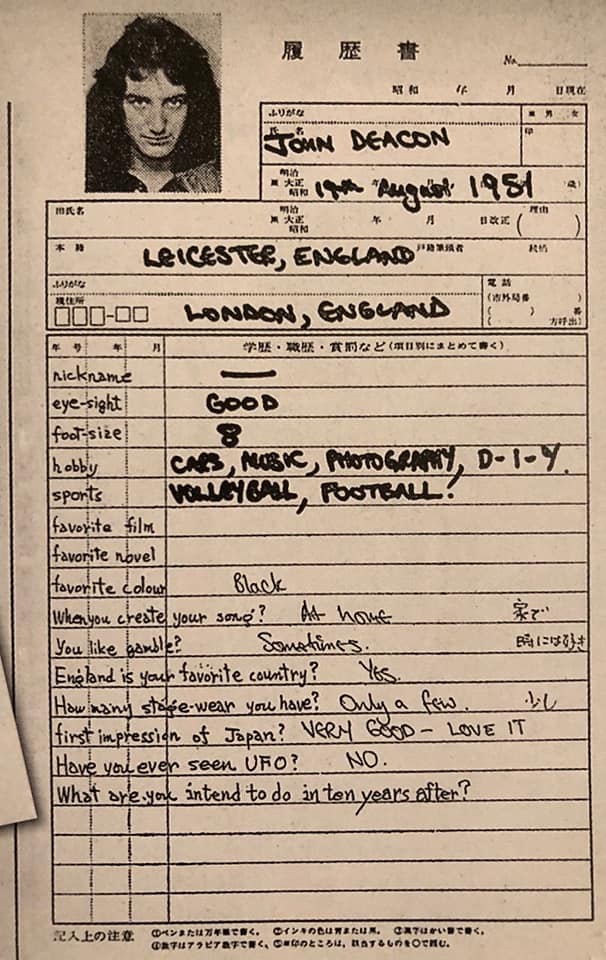 履歴書
No.
昭和 年 月 日現在
ふりがな
※ 男 女
氏名
印
JOHN DEACON
明治
※ 大正
昭和
19th August 1951
年 月
歳)
旧氏名
明治
※ 大正
昭和
年 月 日改正
理由
( )
本籍
LEICESTER, ENGLAND
戸籍筆頭者
続柄
ふりがな
現住所
LONDON, ENGLAND
電話
(市外局番 )
( ) 番
( 方呼出)
年号 年 月 学歴・職歴・賞罰など(項目別にまとめて書く)
nickname —
eye-sight GOOD
foot-size 8
hobby CARS, MUSIC, PHOTOGRAPHY, D-I-Y.
sports VOLLEYBALL, FOOTBALL.
favorite film
favorite novel
favorite colour Black
When you create your song? At home 家で
You like gamble? Somtimes. 時には好き
England is your favorite country? Yes.
How many stage-wear you have? Only a few. 少し
first impression of Japan? VERY GOOD - LOVE IT
Have you ever seen UFO? NO.
What are you intend to do in ten years after?
記入上の注意 ①ペンまたは万年筆で書く。 ②インキの色は青または黒。 ③漢字はかい書で書く。
④数字はアラビア数字で書く。 ⑤※印のところは、該当するものを○で囲む。